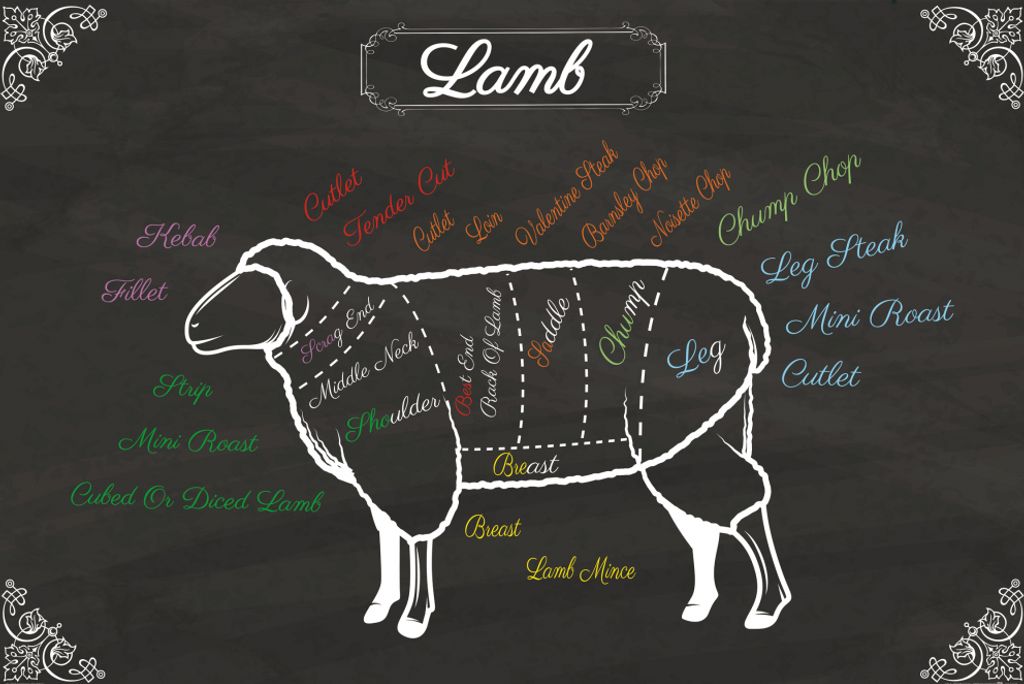 Lamb
Kebab
Fillet
Cutlet
Tender Cut
Cutlet
Loin
Valentine Steak
Barnsley Chop
Noisette Chop
Chump Chop
Leg Steak
Mini Roast
Cutlet
Scrag End
Middle Neck
Shoulder
Best End
Rack Of Lamb
Saddle
Chump
Leg
Breast
Strip
Mini Roast
Cubed Or Diced Lamb
Breast
Lamb Mince